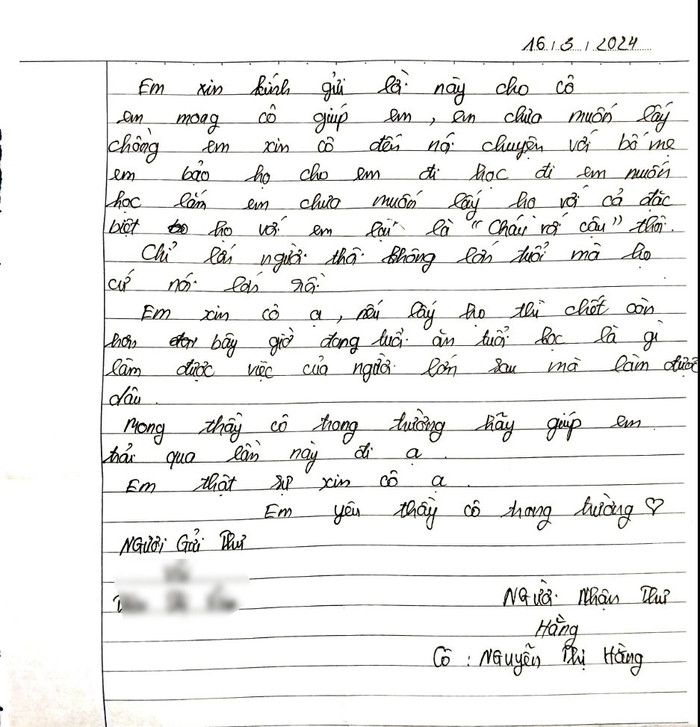 16/3/2024
Em xin kính gửi lời này cho cô
em mong cô giúp em, em chưa muốn lấy
chồng em xin cô đến nói chuyện với bố mẹ
em bảo họ cho em đi học đi em muốn
học lắm em chưa muốn lấy họ với cả đặc
biệt họ với em lại là "Cháu với cậu" thôi.
Chỉ lớn người thôi không lớn tuổi mà họ
cứ nói lớn rồi
Em xin cô ạ, nếu lấy họ thì chết còn
hơn bây giờ đang tuổi ăn tuổi học là gì
làm được việc của người lớn sau mà làm được
đâu.
Mong thầy cô trong trường hãy giúp em
trải qua lần này đi ạ.
Em thật sự xin cô ạ.
Em yêu thầy cô trong trường ♡
Người Gửi Thư
Người Nhận Thư
Hằng
Cô : Nguyễn Thị Hằng